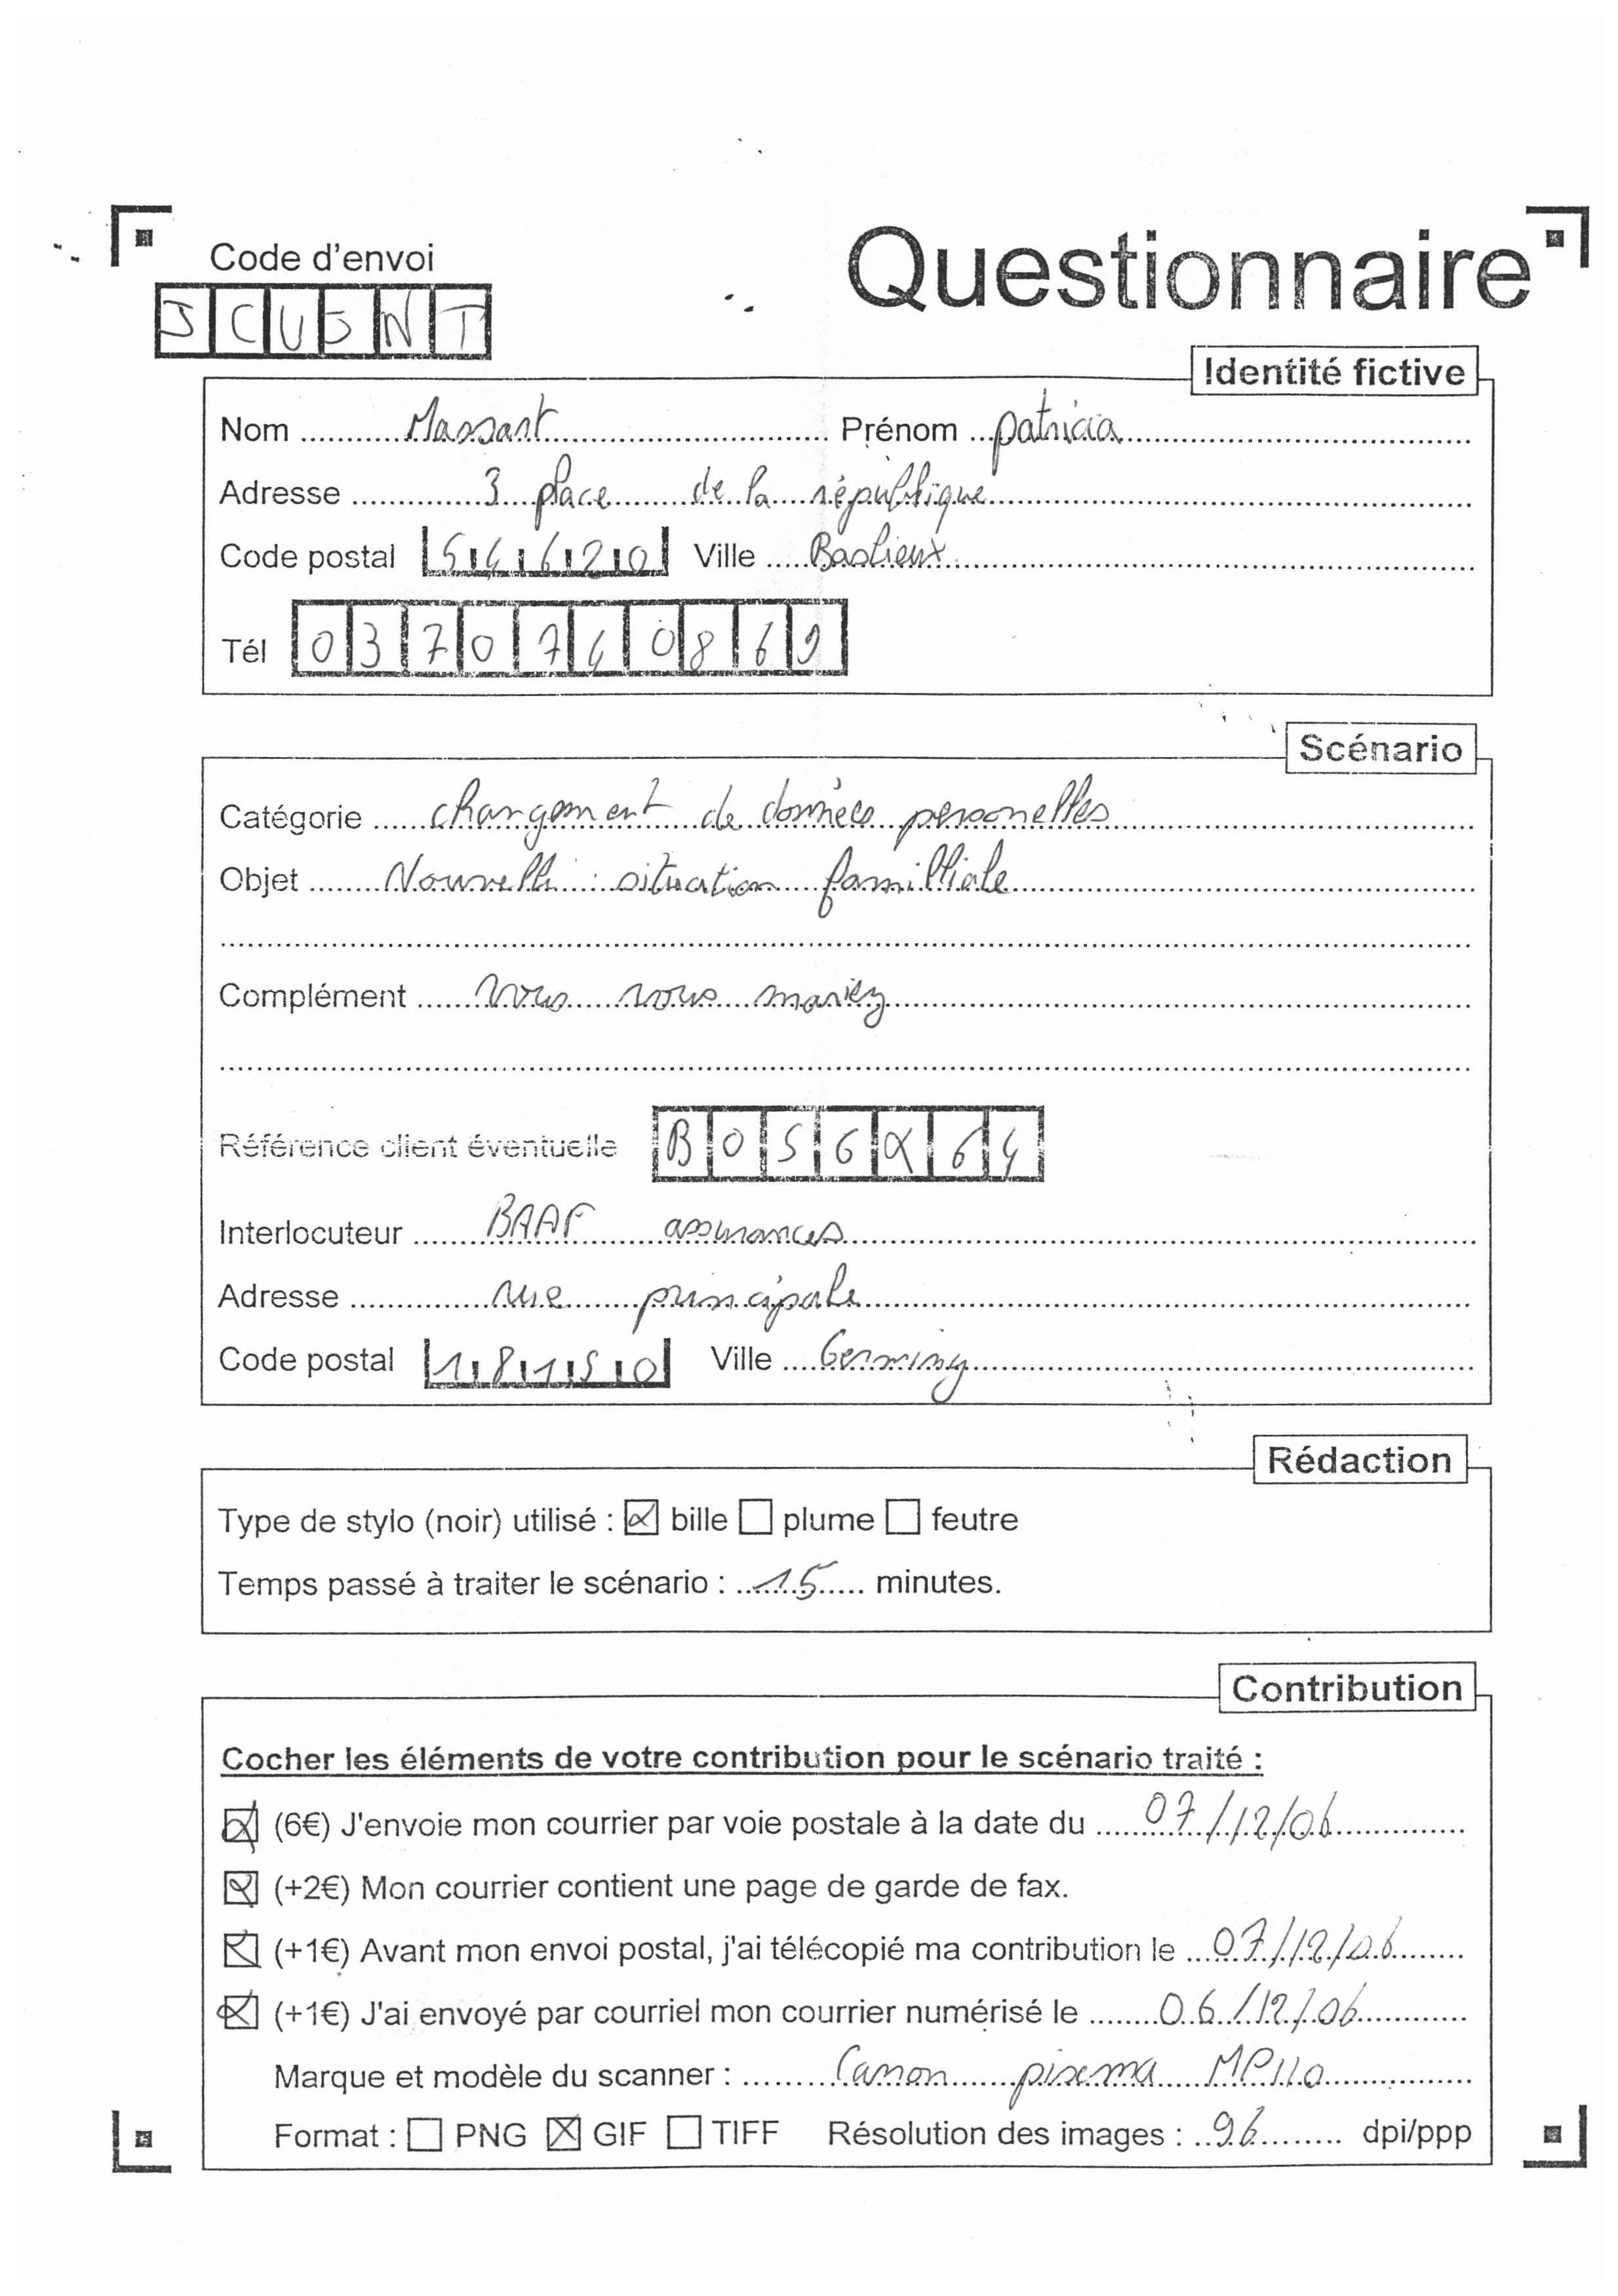 Code d'envoi
Questionnaire
JCU5NT
Identité fictive
Nom Massart Prénom patricia
Adresse 3 place de la république
Code postal 54620 Ville Baslieux
Tél 0370740869
Scénario
Catégorie changement de données personelles
Objet Nouvelle situation familliale
Complément vous vous mariez
Référence client éventuelle B056X64
Interlocuteur BAAF assurances
Adresse rue principale
Code postal 18150 Ville Germiny
Rédaction
Type de stylo (noir) utilisé : bille plume feutre
Temps passé à traiter le scénario : 15 minutes.
Contribution
Cocher les éléments de votre contribution pour le scénario traité :
(6€) J'envoie mon courrier par voie postale à la date du 07/12/06
(+2€) Mon courrier contient une page de garde de fax.
(+1€) Avant mon envoi postal, j'ai télécopié ma contribution le 07/12/06
(+1€) J'ai envoyé par courriel mon courrier numérisé le 06/12/06
Marque et modèle du scanner : Canon pixma MP110
Format : PNG GIF TIFF Résolution des images : 96 dpi/ppp